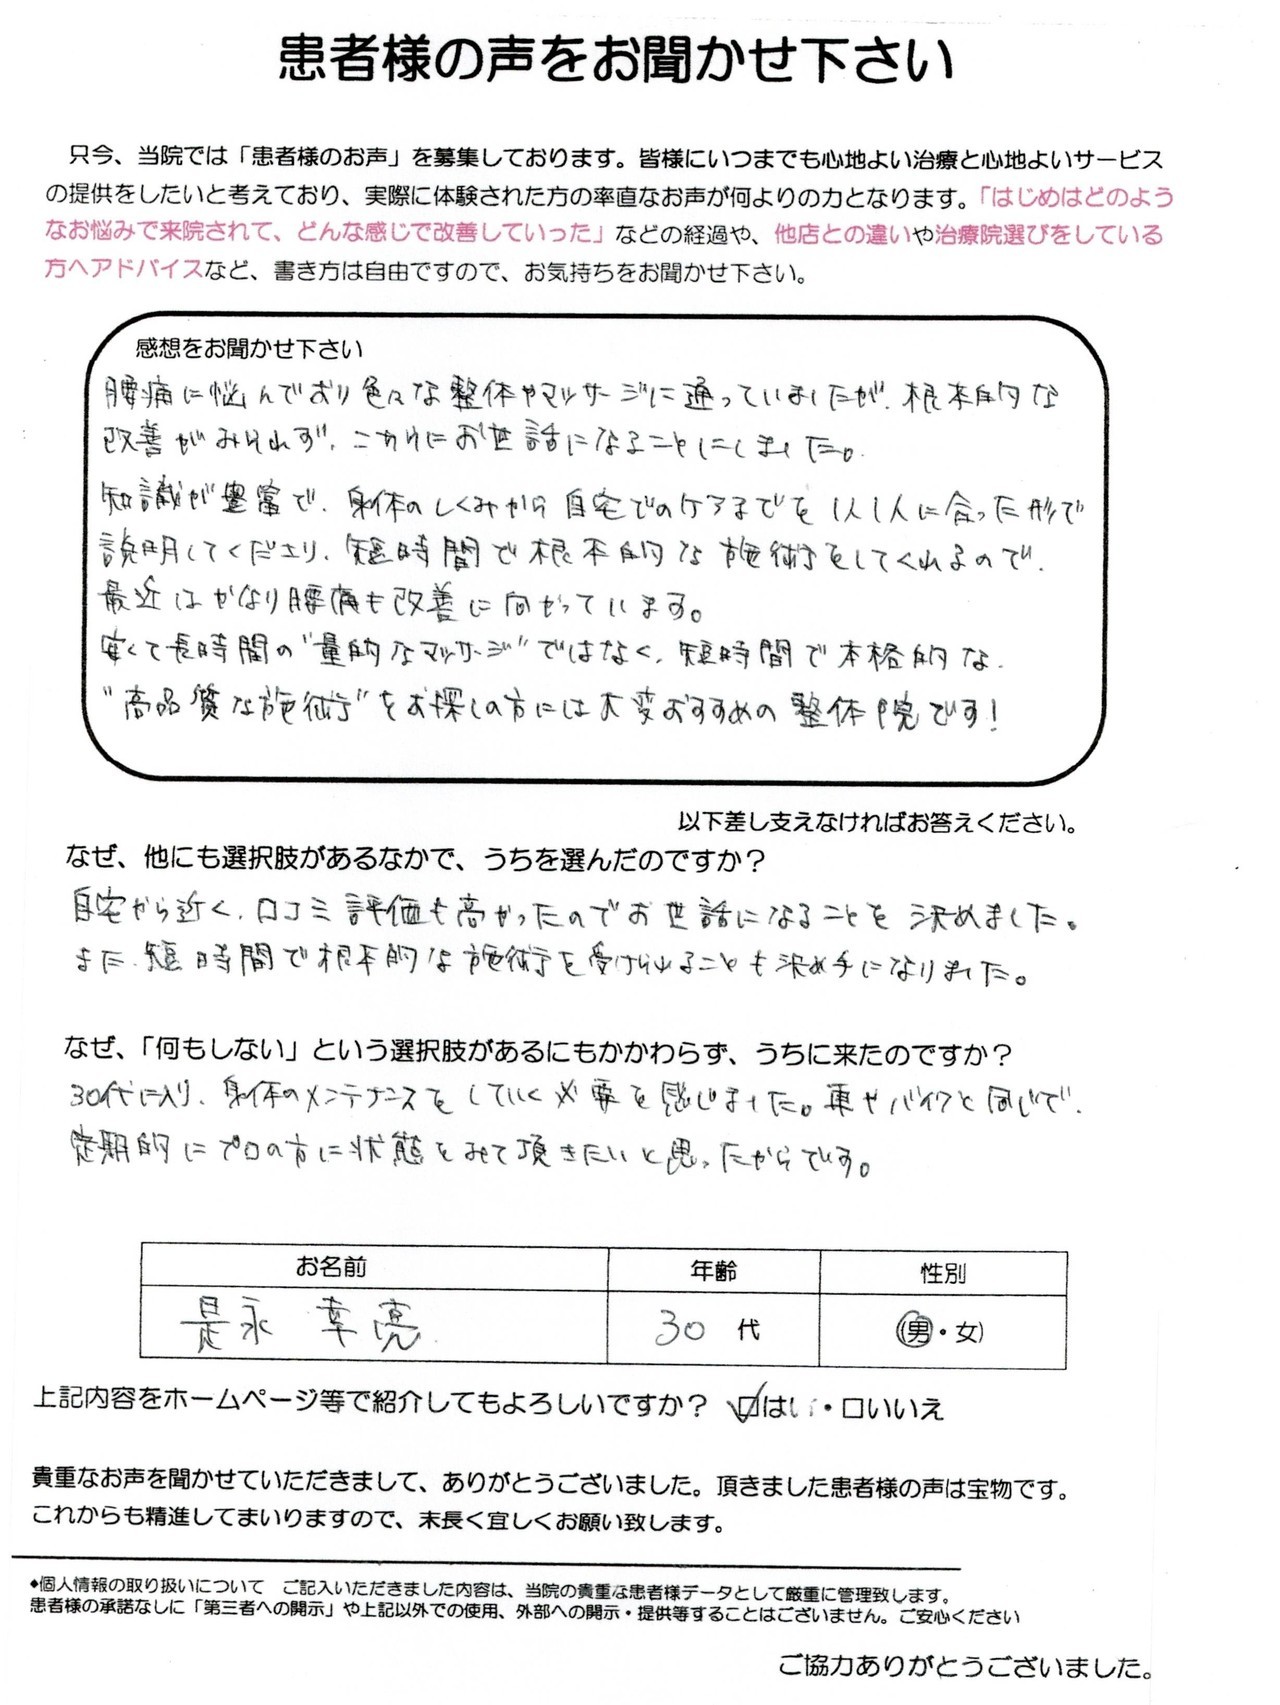 患者様の声をお聞かせ下さい
只今、当院では「患者様のお声」を募集しております。皆様にいつまでも心地よい治療と心地よいサービス
の提供をしたいと考えており、実際に体験された方の率直なお声が何よりの力となります。「はじめはどのよう
なお悩みで来院されて、どんな感じで改善していった」などの経過や、他店との違いや治療院選びをしている
方へアドバイスなど、書き方は自由ですので、お気持ちをお聞かせ下さい。
感想をお聞かせ下さい
腰痛に悩んでおり色々な整体やマッサージに通っていましたが、根本的な
改善がみられず、こちらにお世話になることにしました。
知識が豊富で、身体のしくみから自宅でのケアまでを1人1人に合った形で
説明してくださり、短時間で根本的な施術をしてくれるので、
最近はかなり腰痛も改善に向かっています。
安くて長時間の"量的なマッサージ"ではなく、短時間で本格的な、
"高品質な施術"をお探しの方には大変おすすめの整体院です!
以下差し支えなければお答えください。
なぜ、他にも選択肢があるなかで、うちを選んだのですか？
自宅から近く、口コミ評価も高かったのでお世話になることを決めました。
また、短時間で根本的な施術を受けられることも決め手になりました。
なぜ、「何もしない」という選択肢があるにもかかわらず、うちに来たのですか？
30代に入り、身体のメンテナンスをしていく必要を感じました。車やバイクと同じで、
定期的にプロの方に状態をみて頂きたいと思ったからです。
お名前 年齢 性別
是永 幸亮 30 代 (男・女)
上記内容をホームページ等で紹介してもよろしいですか？ ☑はい・□いいえ
貴重なお声を聞かせていただきまして、ありがとうございました。頂きました患者様の声は宝物です。
これからも精進してまいりますので、末長く宜しくお願い致します。
◆個人情報の取り扱いについて ご記入いただきました内容は、当院の貴重な患者様データとして厳重に管理致します。
患者様の承諾なしに「第三者への開示」や上記以外での使用、外部への開示・提供等することはございません。ご安心ください
ご協力ありがとうございました。